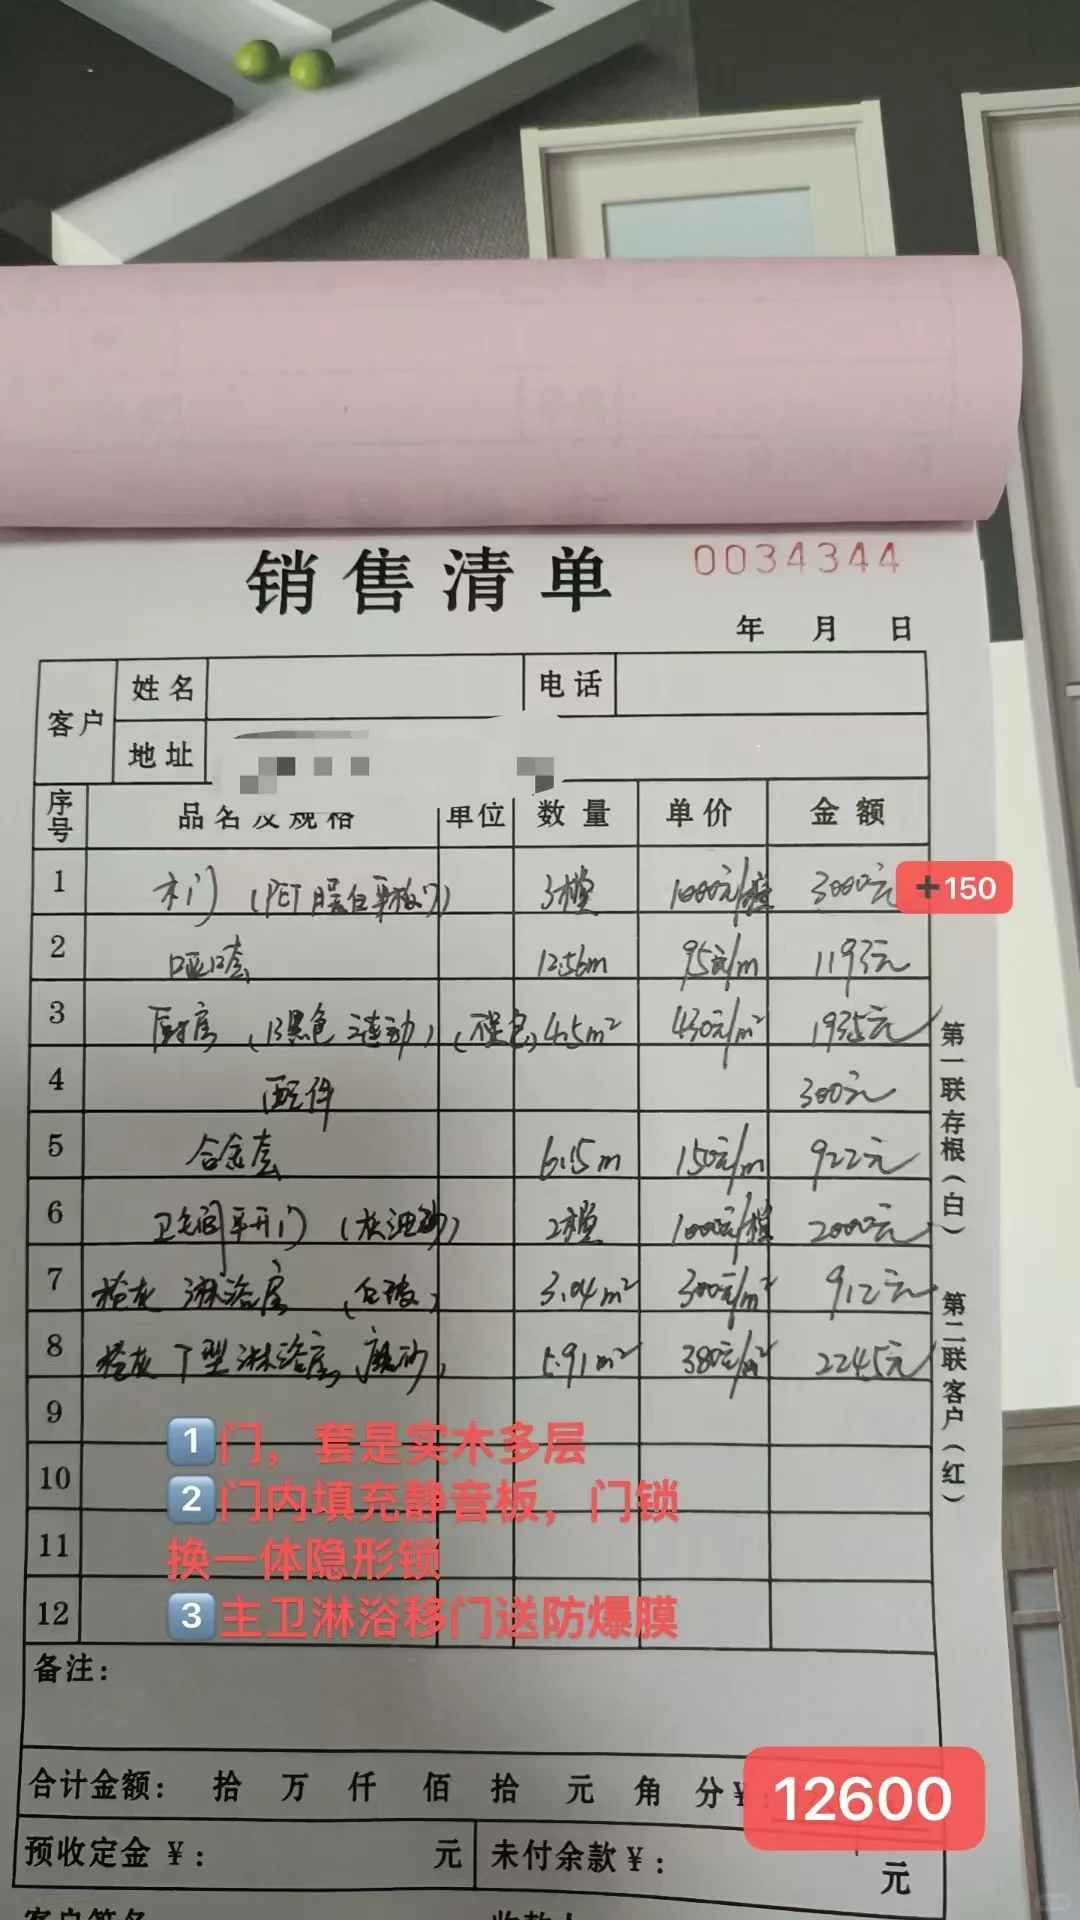 销售清单 0034344
年 月 日
客户 姓名 电话
地址
序号 品名及规格 单位 数量 单价 金额
1 木门 (PET 暖白平板门) 3樘 1000元/樘 3000元 +150
2 哑口套 12.56m 95元/m 1193元
3 厨房 (13黑色 三连动) 4.5m² 430元/m² 1935元
4 配件 300元
5 合金套 6.15m 150元/m 922元
6 卫生间平开门 (灰油砂) 2樘 1000元/樘 2000元
7 枪灰 淋浴房 (白玻) 3.04m² 300元/m² 912元
8 枪灰 T型淋浴房 磨砂 5.91m² 380元/m² 2245元
9
1 门，套是实木多层
10
2 门内填充静音板，门锁
11
换一体隐形锁
12
3 主卫淋浴移门送防爆膜
第一联存根(白)
第二联客户(红)
备注：
合计金额： 拾 万 仟 佰 拾 元 角 分 ¥: 12600
预收定金 ¥： 元 未付余款 ¥： 元
客户签名 收款人